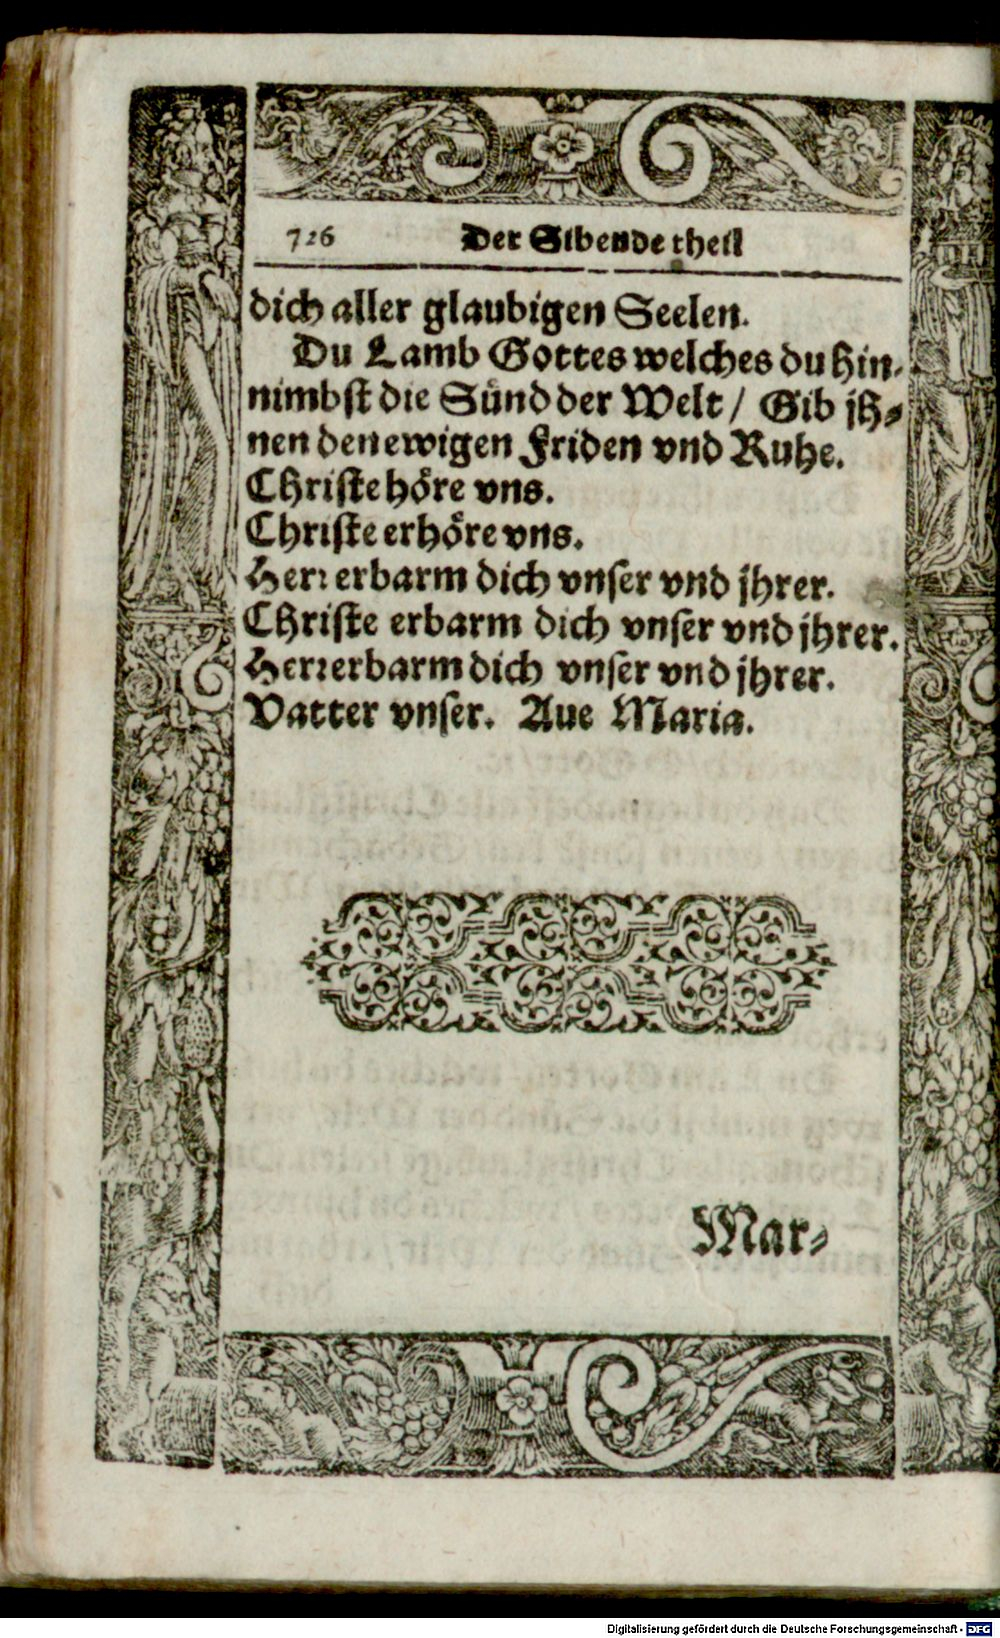 726 Der Sibende theil
dich aller glaubigen Seelen.
Du Lamb Gottes welches du hin-
nimbst die Sünd der Welt / Gib jh-
nen den ewigen Friden vnd Ruhe.
Christe höre vns.
Christe erhöre vns.
Herr erbarm dich vnser vnd jhrer.
Christe erbarm dich vnser vnd jhrer.
Herr erbarm dich vnser vnd jhrer.
Vatter vnser. Aue Maria.
Mar-
Digitalisierung gefördert durch die Deutsche Forschungsgemeinschaft - DFG